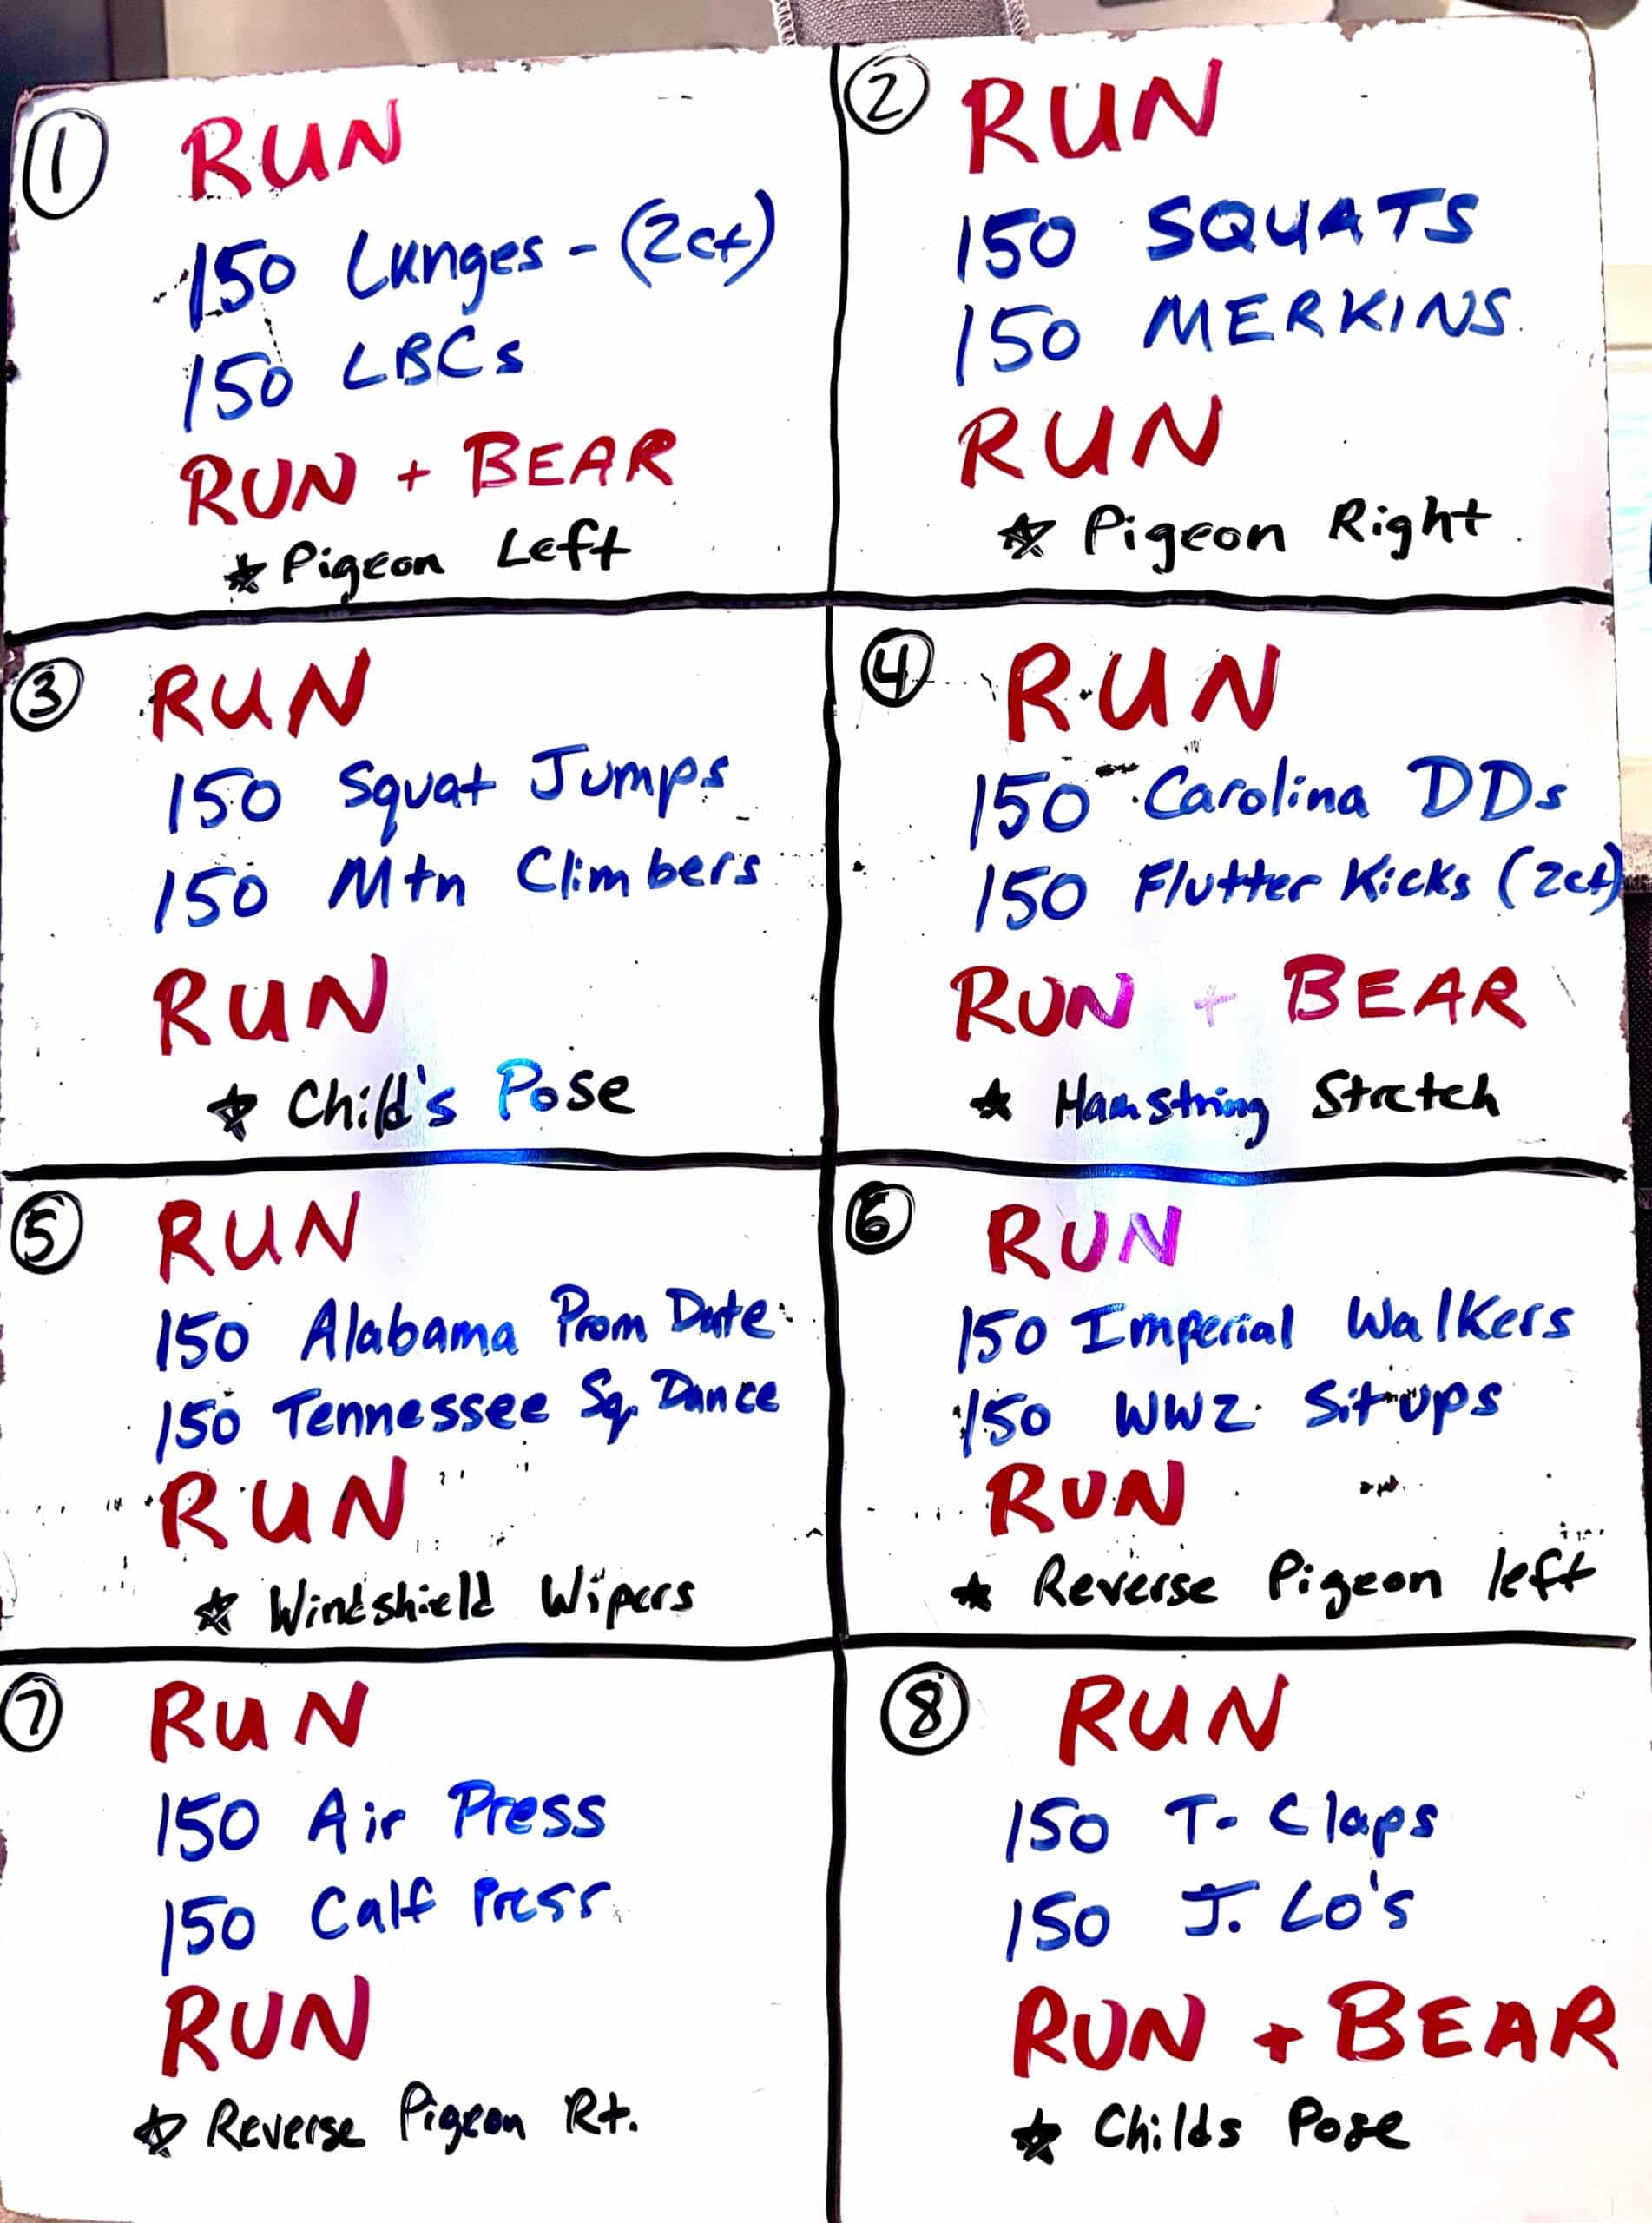 1 RUN
150 Lunges - (2ct)
150 LBCs
RUN + BEAR
☆ Pigeon Left
2 RUN
150 SQUATS
150 MERKINS
RUN
☆ Pigeon Right
3 RUN
150 Squat Jumps
150 Mtn Climbers
RUN
☆ Child's Pose
4 RUN
150 Carolina DDs
150 Flutter Kicks (2ct)
RUN + BEAR
☆ Hamstring Stretch
5 RUN
150 Alabama Prom Date
150 Tennessee Sq. Dance
RUN
☆ Windshield Wipers
6 RUN
150 Imperial Walkers
150 WW2 Situps
RUN
☆ Reverse Pigeon left
7 RUN
150 Air Press
150 Calf Press
RUN
☆ Reverse Pigeon Rt.
8 RUN
150 T-Claps
150 J. Lo's
RUN + BEAR
☆ Childs Pose